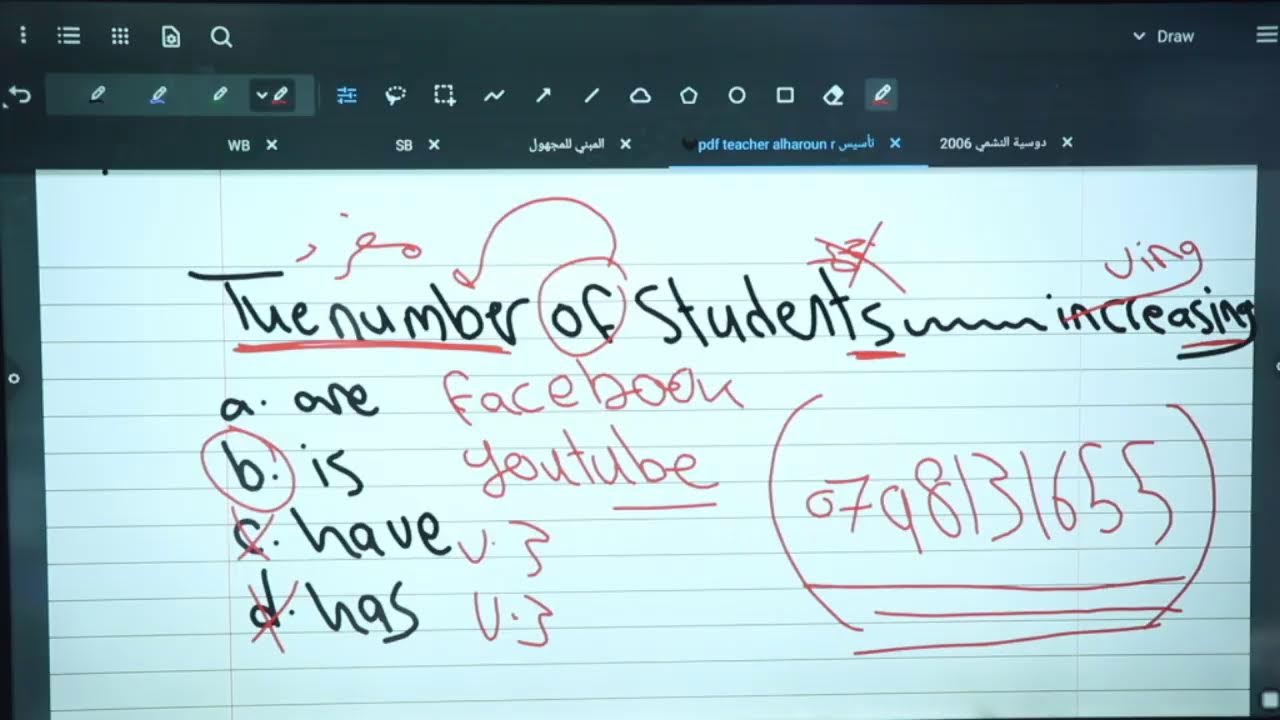 Draw
WB
SB
المبني للمجهول
pdf teacher alharoun r تأسيس
دوسية النشمي 2006
مفرد
ving
The number of students increasing
a. are facebook
b. is youtube
0798131655
c. have v.3
d. has v.3